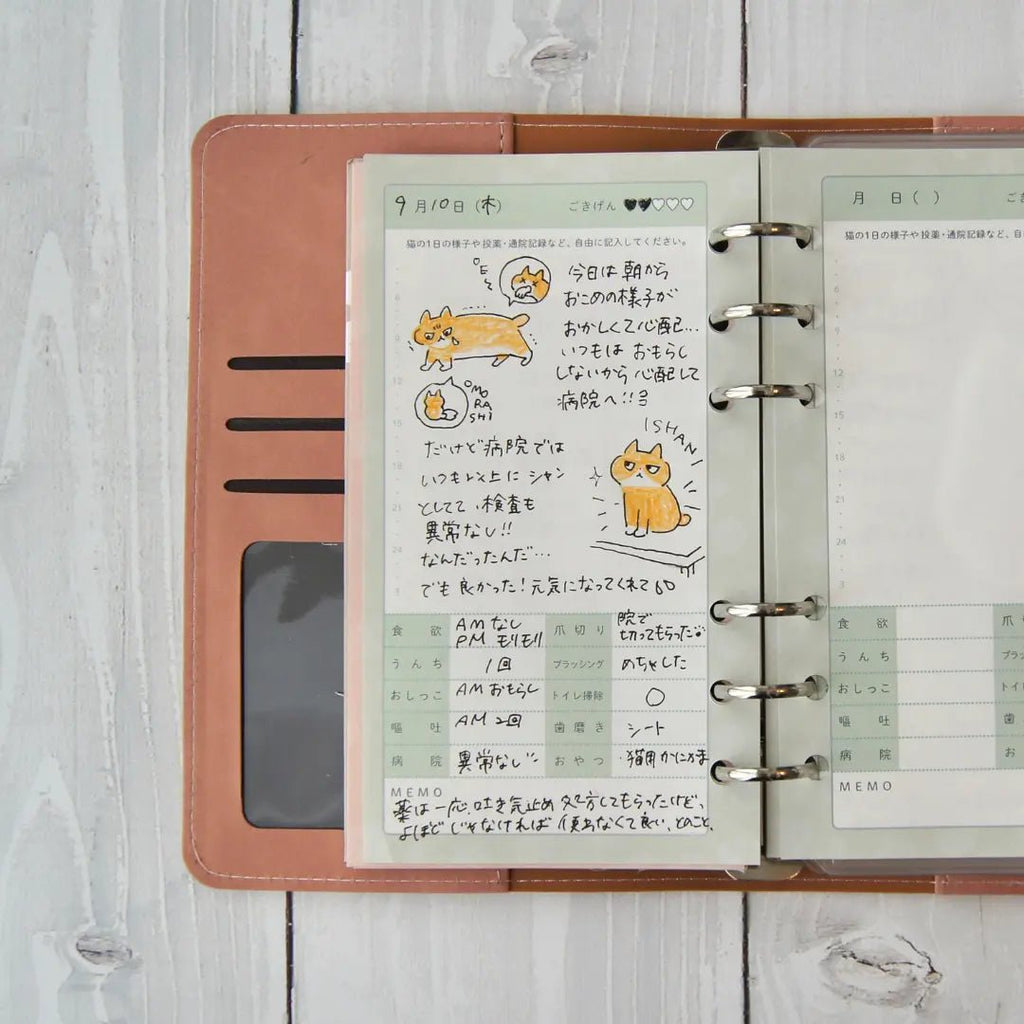 9月10日(木) ごきげん
猫の1日の様子や投薬・通院記録など、自由に記入してください。
OE
今日は朝から
おこめの様子が
おかしくて心配...
いつもは おもらし
しないから 心配して
病院へ!!
OMO
RA
SHI
だけど病院では
いつも以上に シャン
としてて、検査も
異常なし!!
なんだったんだ…
でも 良かった!元気になってくれて
ISHAN
6
9
12
15
18
21
24
3
食欲 AM なし 爪切り 院で
PM モリモリ 切ってもらった
うんち 1回 ブラッシング めちゃした
おしっこ AM おもらし トイレ掃除 ○
嘔吐 AM 2回 歯磨き シート
病院 異常なし おやつ 猫用かにかま
MEMO
薬は一応、吐き気止め 処方してもらったけど、
よほど じゃなければ 使わなくて良い、とのこと、
月 日( ) ごき
猫の1日の様子や投薬・通院記録など、自
6
9
12
15
18
21
24
3
食欲 爪
うんち ブラッ
おしっこ トイレ
嘔吐 歯
病院 お
MEMO